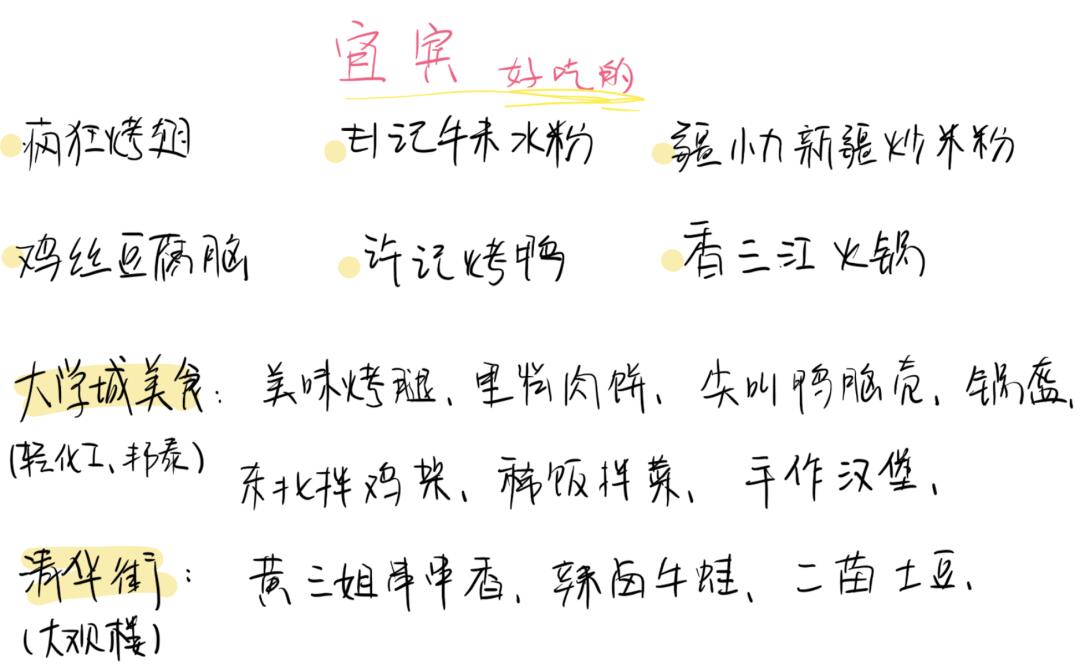 宜宾 好吃的
疯狂烤翅 记牛末水粉 疆小力新疆炒米粉
鸡丝豆腐脑 许记烤鸭 香三江火锅
大学城美食：美味烤腿、肉饼、尖叫鸭脑壳、锅盔、
(轻化工、邦泰) 东北拌鸡架、稀饭拌菜、手作汉堡、
清华街：黄三姐串串香、辣卤牛蛙、二苗土豆、
(大观楼)